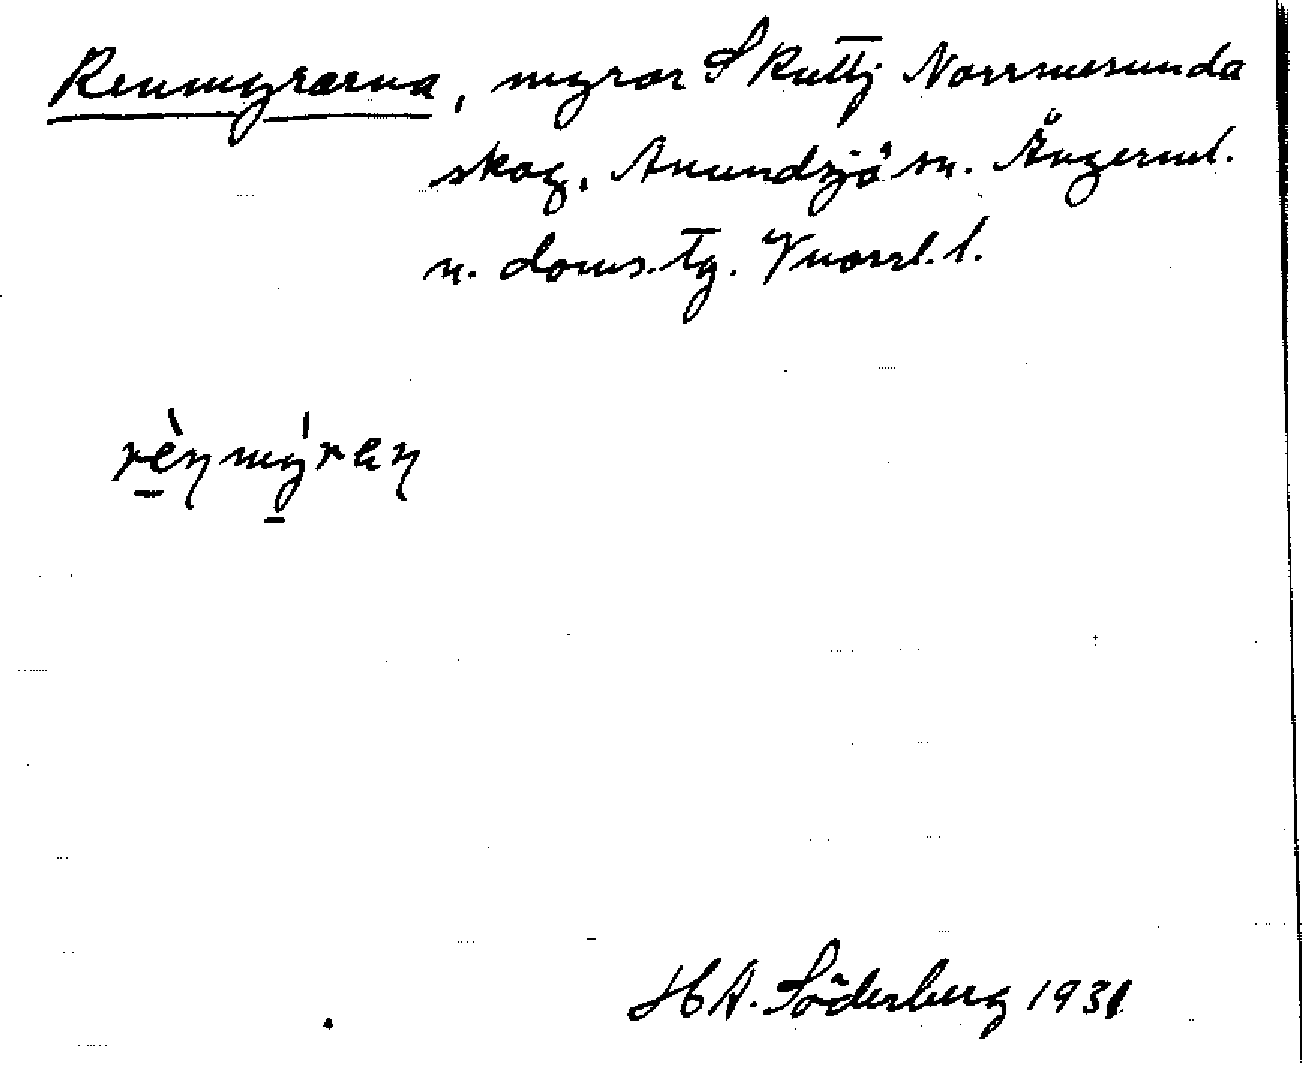 Renmyrarna, myror S Ruttj Norrmesunda
skog, Anundsjö sn. Ångerml.
n. doms. tg. Vnorrl. l.
rènmýran
H A. Söderberg 1931